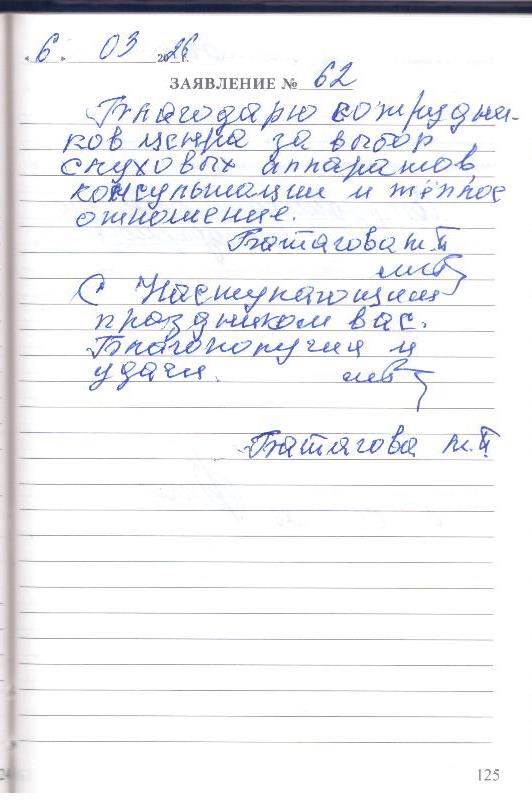 « 6 » 03 2026 г.
ЗАЯВЛЕНИЕ № 62
Благодарю сотрудни-
ков центра за выбор
слуховых аппаратов,
консультации и тёплое
отношение.
Батагова М.П
С Наступающим
праздником вас.
Благополучия и
удачи.
Батагова М.П
125